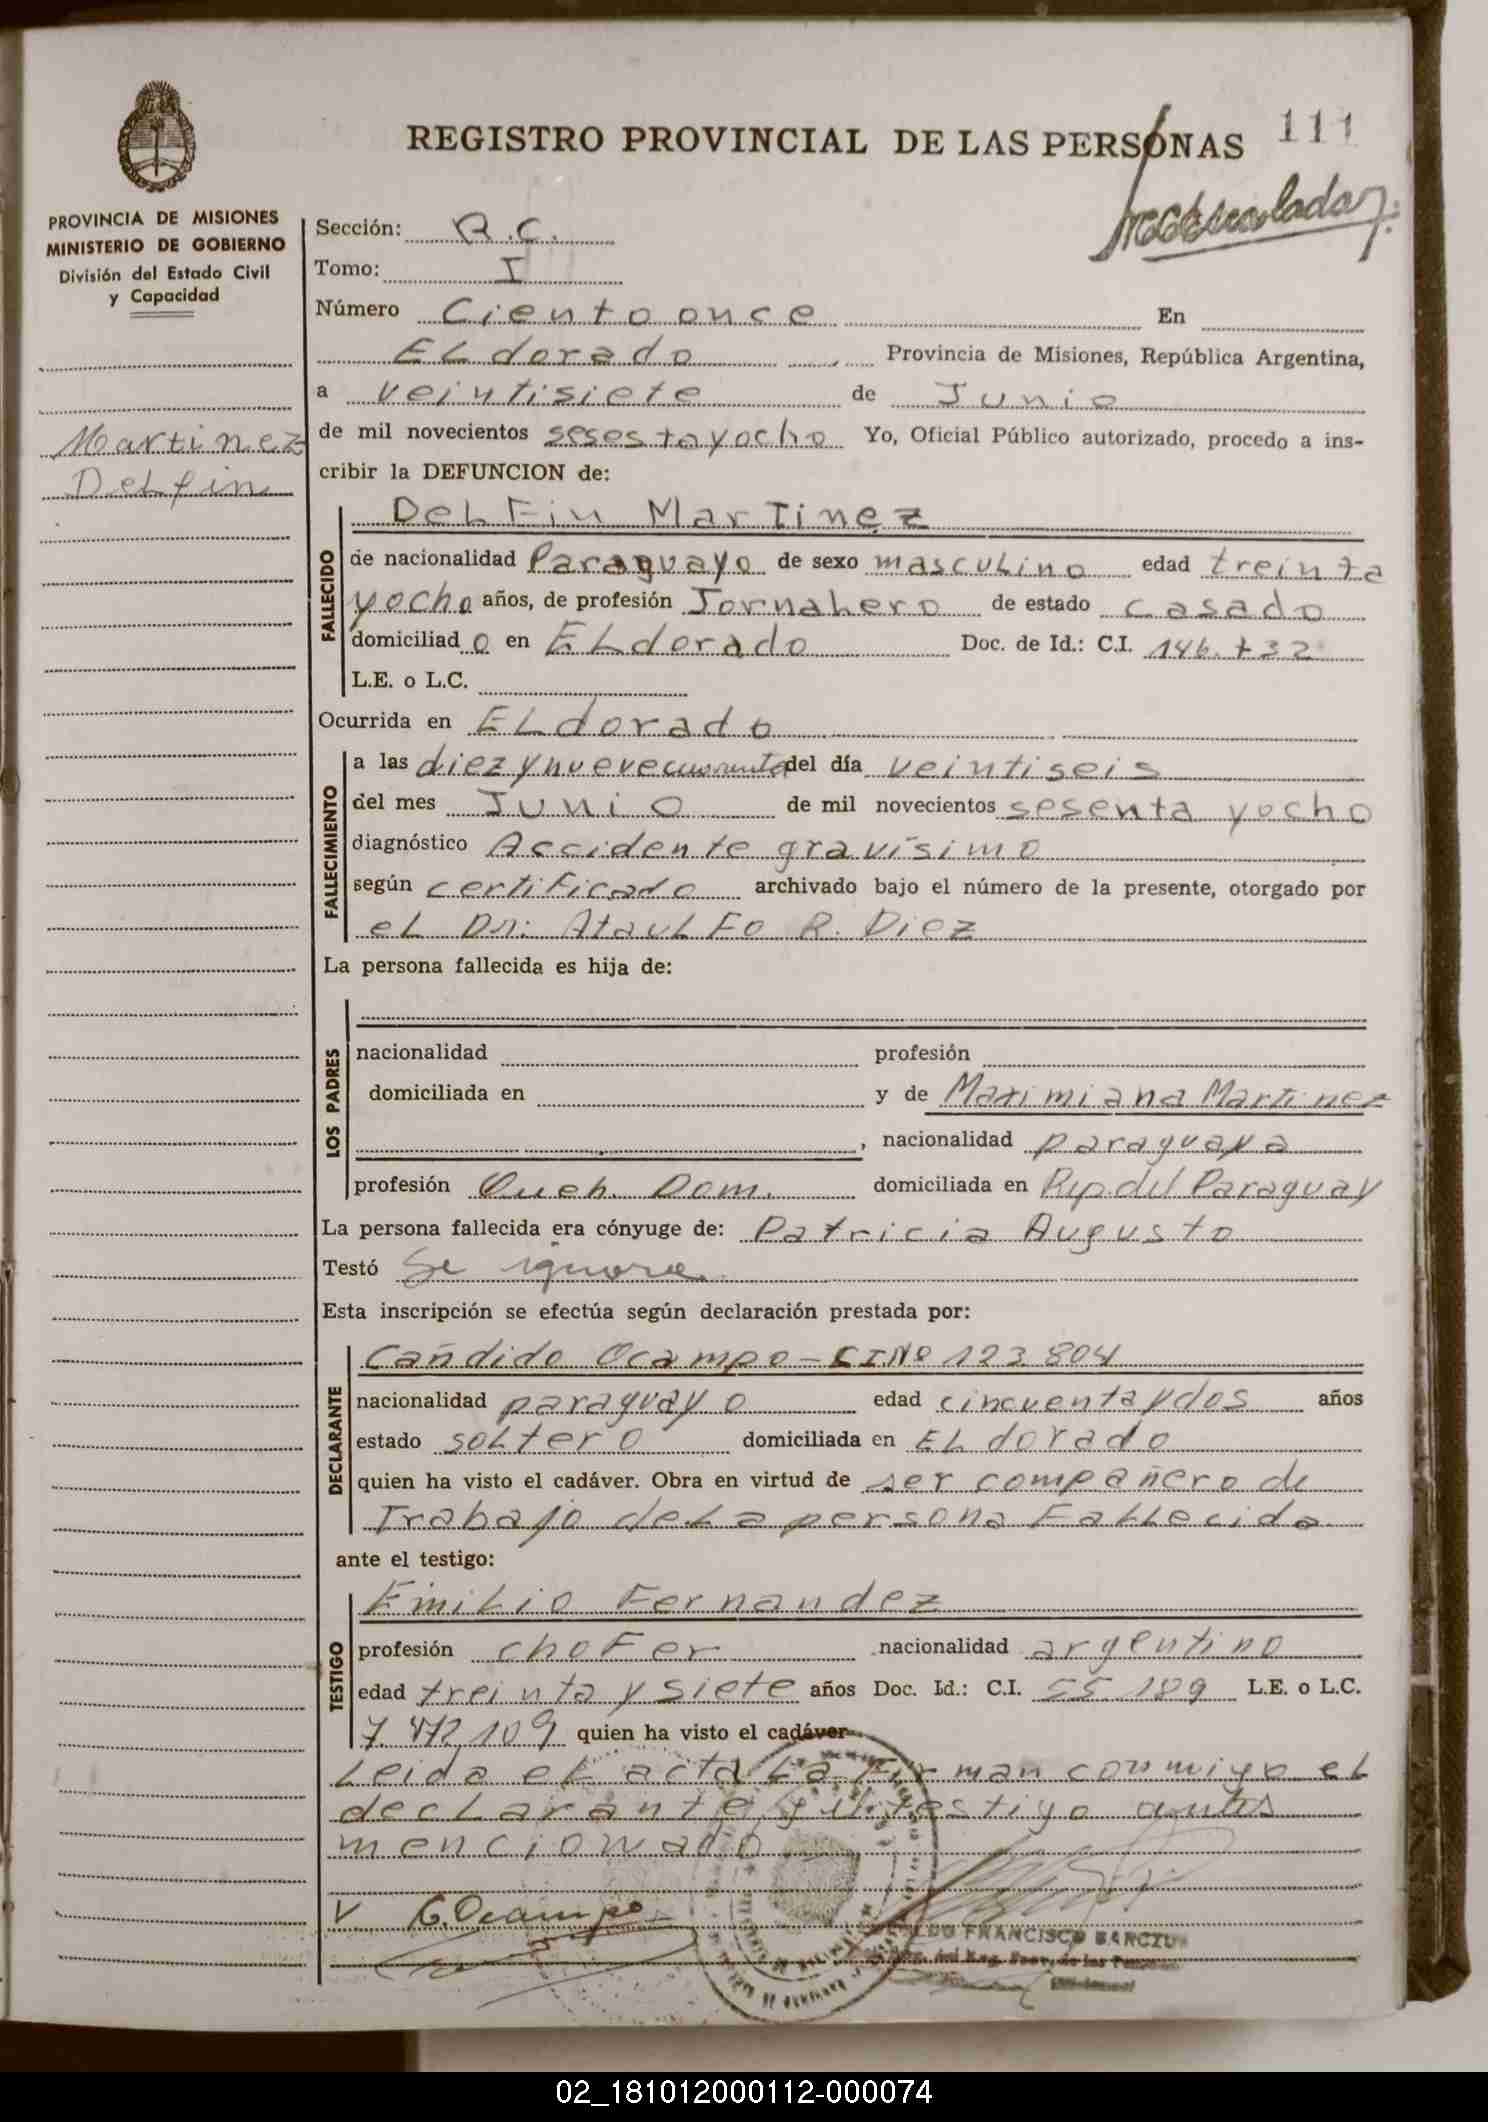 REGISTRO PROVINCIAL DE LAS PERSONAS 111
PROVINCIA DE MISIONES
MINISTERIO DE GOBIERNO
División del Estado Civil
y Capacidad
Martinez
Delfin
Sección: R.C.
Tomo: I
Número Ciento once En
ELdorado Provincia de Misiones, República Argentina,
a veintisiete de Junio
de mil novecientos sesestayocho Yo, Oficial Público autorizado, procedo a ins-
cribir la DEFUNCION de:
DeLFin MarTinez
FALLECIDO
de nacionalidad Paraguayo de sexo mascuLino edad treinta
yocho años, de profesión JornaLero de estado casado
domiciliad o en ELdorado Doc. de Id.: C.I. 146.732
L.E. o L.C.
Ocurrida en ELdorado
FALLECIMIENTO
a las diez y nueve cuarenta del día veintiseis
del mes Junio de mil novecientos sesenta yocho
diagnóstico Accidente gravísimo
según certiFicado archivado bajo el número de la presente, otorgado por
eL Dr: AtauLFo R. Diez
La persona fallecida es hija de:
LOS PADRES
nacionalidad profesión
domiciliada en y de Maximiana Martinez
, nacionalidad paraguaya
profesión Queh. Dom. domiciliada en Rep. del Paraguay
La persona fallecida era cónyuge de: Patricia Augusto
Testó Se ignora
Esta inscripción se efectúa según declaración prestada por:
DECLARANTE
Cañdido Ocampo - CI Nº 123.804
nacionalidad paraguayo edad cincuentaydos años
estado soLtero domiciliada en ELdorado
quien ha visto el cadáver. Obra en virtud de ser compañero de
Trabajo deLa persona FaLLecida
ante el testigo:
TESTIGO
EmiLio Fernandez
profesión choFer nacionalidad argentino
edad treinta y siete años Doc. Id.: C.I. 55.189 L.E. o L.C.
7.472.109 quien ha visto el cadáver
Leida eL acta La Firman conmigo eL
decLarante y el testigo antes
mencionado
C. Ocampo
FRANCISCO
02_181012000112-000074